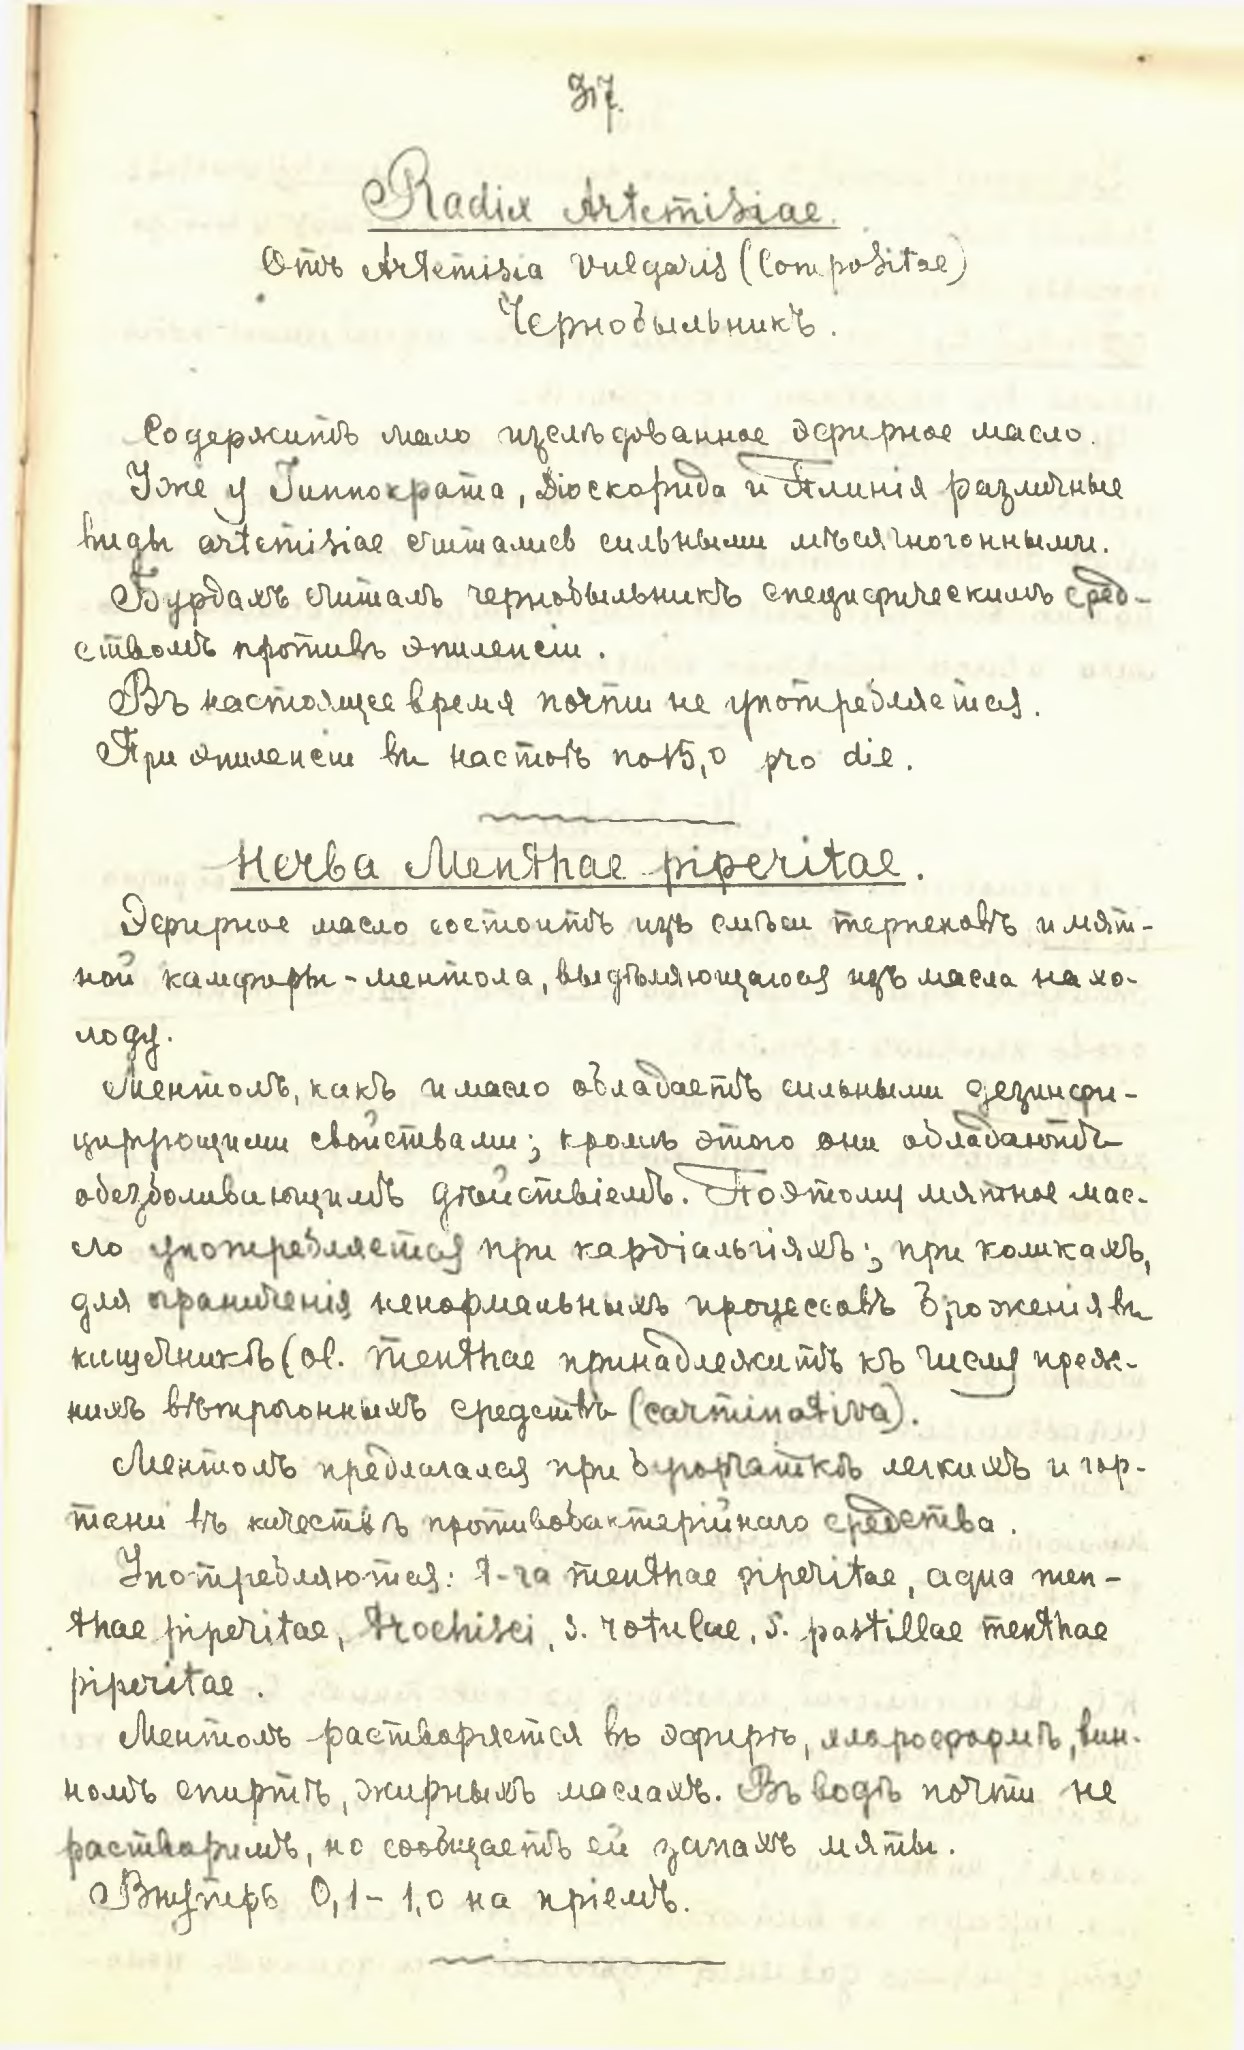 317.
Radix Artemisiae.
Отъ Artemisia vulgaris (Compositae)
Чернобыльникъ.
Содержитъ мало изслѣдованное эфирное масло.
Уже у Гиппократа, Діоскорида и Плинія различные
виды artemisiae считались сильными мѣсячногонными.
Бурдахъ считалъ чернобыльникъ специфическимъ сред-
ствомъ противъ эпилепсіи.
Въ настоящее время почти не употребляется.
При эпилепсіи въ настоѣ по 15,0 pro die.
Herba Menthae piperitae.
Эфирное масло состоитъ изъ смѣси терпеновъ и мят-
ной камфоры - ментола, выдѣляющагося изъ масла на хо-
лоду.
Ментолъ, какъ и масло обладаетъ сильными дезинфи-
цирующими свойствами; кромѣ этого они обладаютъ
обезболивающимъ дѣйствіемъ. Поэтому мятное мас-
ло употребляется при кардіальгіяхъ; при коликахъ,
для ограниченія ненормальныхъ процессовъ броженія въ
кишечникѣ (ol. menthae принадлежитъ къ числу преж-
нихъ вѣтрогонныхъ средствъ (carminativa).
Ментолъ предлагался при бугорчаткѣ легкихъ и гор-
тани въ качествѣ противобактерійнаго средства.
Употребляются: t-ra menthae piperitae, aqua men-
thae piperitae, trochisci, s. rotulae, s. pastillae menthae
piperitae.
Ментолъ растворяется въ эфирѣ, хлороформѣ, вин-
номъ спиртѣ, жирныхъ маслахъ. Въ водѣ почти не
растворимъ, но сообщаетъ ей запахъ мяты.
Внутрь 0,1 - 1,0 на пріемъ.